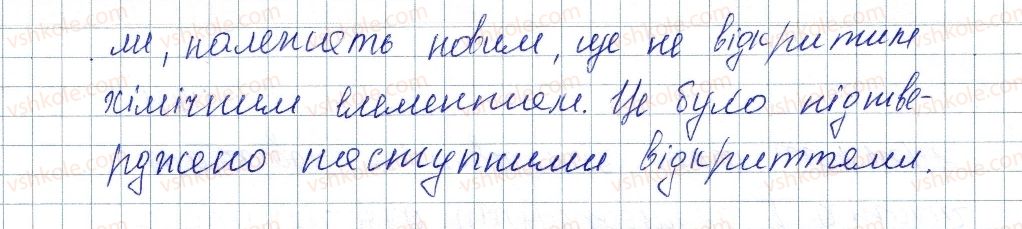 ми, належать новим, ще не відкритим
хімічним елементам. Це було підтве-
рджено наступними відкриттями.